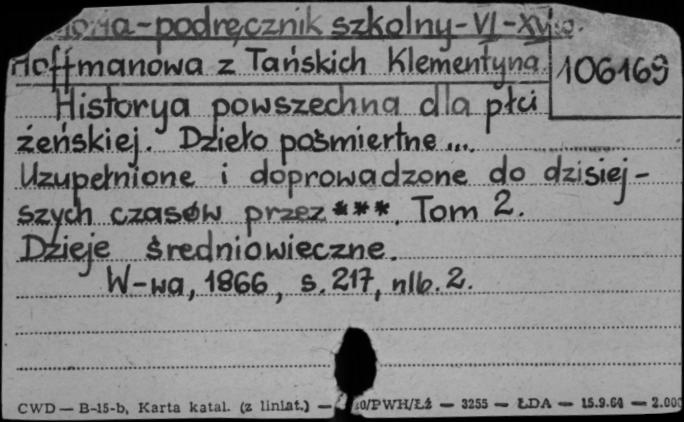 -podręcznik szkolny-VI-XV w.
Hoffmanowa z Tańskich Klementyna.
106169
Historya powszechna dla płci
żeńskiej. Dzieło pośmiertne...
Uzupełnione i doprowadzone do dzisiej-
szych czasów przez ***. Tom 2.
Dzieje średniowieczne.
W-wa, 1866, s. 217, nlb. 2.
CWD — B-15-b, Karta katal. (z liniat.) — /PWH/Łź — 3255 — ŁDA — 15.9.64 — 2.000